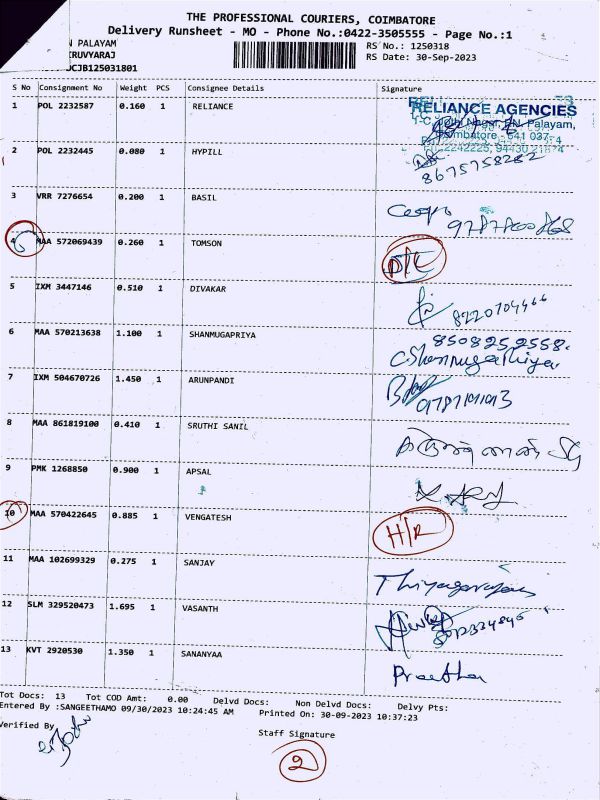 THE PROFESSIONAL COURIERS, COIMBATORE
Delivery Runsheet - MO - Phone No.:0422-3505555 - Page No.:1
N PALAYAM
RUVYARAJ
UCJB125031801
RS No.: 1250318
RS Date: 30-Sep-2023
S No Consignment No Weight PCS Consignee Details Signature
1 POL 2232587 0.160 1 RELIANCE
RELIANCE AGENCIES
Nagar, P.N. Palayam,
Coimbatore - 641 037.
2242225, 94430
2 POL 2232445 0.080 1 HYPILL
8675758282
3 VRR 7276654 0.200 1 BASIL
4 MAA 572069439 0.260 1 TOMSON
D/L
5 IXM 3447146 0.510 1 DIVAKAR
8220704466
6 MAA 570213638 1.100 1 SHANMUGAPRIYA
8508252558.
C.Shanmugathiya
7 IXM 504670726 1.450 1 ARUNPANDI
8 MAA 861819100 0.410 1 SRUTHI SANIL
9 PMK 1268850 0.900 1 APSAL
10 MAA 570422645 0.885 1 VENGATESH
H/R
11 MAA 102699329 0.275 1 SANJAY
Thiyagarajan
12 SLM 329520473 1.695 1 VASANTH
13 KVT 2920530 1.350 1 SANANYAA
Preetha
Tot Docs: 13 Tot COD Amt: 0.00 Delvd Docs: Non Delvd Docs: Delvy Pts:
Entered By :SANGEETHAMO 09/30/2023 10:24:45 AM Printed On: 30-09-2023 10:37:23
Verified By
Staff Signature
2